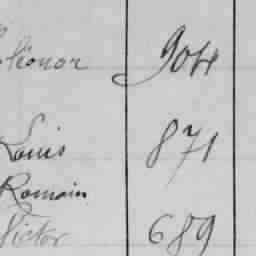 Eléonor 904
Louis 871
Romain
Victor 689